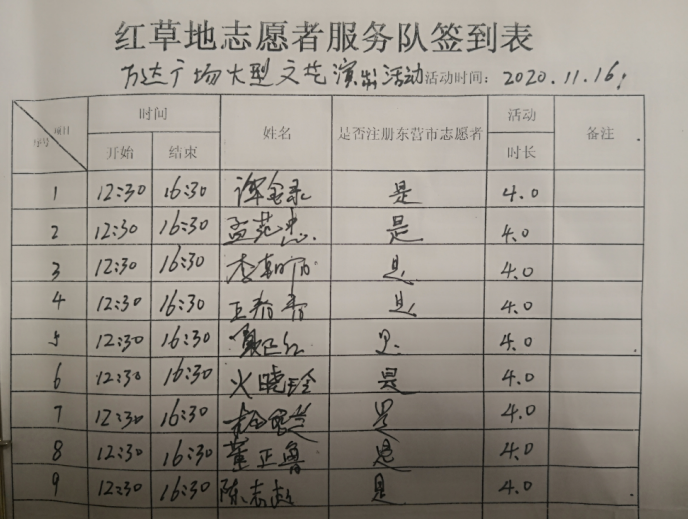 红草地志愿者服务队签到表
万达广场大型文艺演出活动活动时间：2020.11.16
序号 项目 时间 姓名 是否注册东营市志愿者 活动 备注
开始 结束 时长
1 12:30 16:30 谭金录 是 4.0
2 12:30 16:30 孟范忠 是 4.0
3 12:30 16:30 李朝 是 4.0
4 12:30 16:30 是 4.0
5 12:30 16:30 是 4.0
6 12:30 16:30 火晓玲 是 4.0
7 12:30 16:30 是 4.0
8 12:30 16:30 董正鲁 是 4.0
9 12:30 16:30 陈志 是 4.0